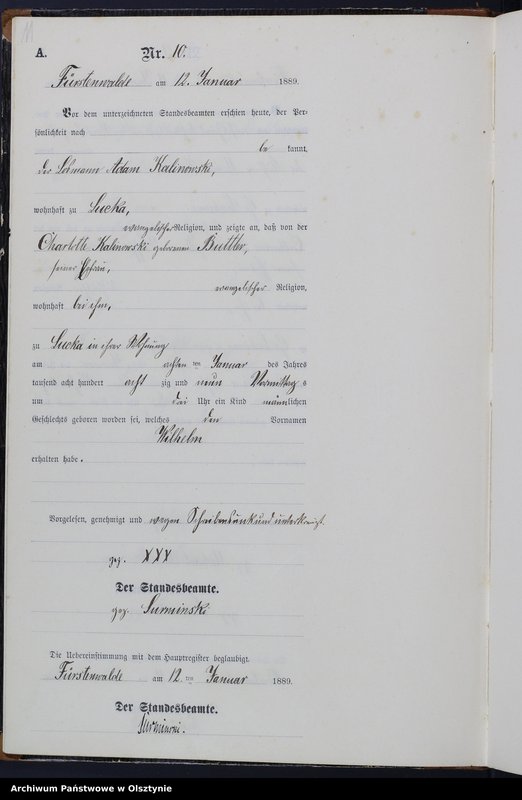 11
A.
Nr. 10.
Fürstenwalde am 12. Januar 1889.
Vor dem unterzeichneten Standesbeamten erschien heute, der Per-
sönlichkeit nach
be kannt,
der Losmann Adam Kalinowski,
wohnhaft zu Sucka,
evangelischer Religion, und zeigte an, daß von der
Charlotte Kalinowski geborenen Buttler,
seiner Ehefrau,
evangelischer Religion,
wohnhaft bei ihm,
zu Sucka in ihrer Wohnung
am achten ten Januar des Jahres
tausend acht hundert acht zig und neun Vormittag s
um drei Uhr ein Kind männlichen
Geschlechts geboren worden sei, welches den Vornamen
Wilhelm
erhalten habe.
Vorgelesen, genehmigt und wegen Schreibensunkund unterkreuzt.
gez. XXX
Der Standesbeamte.
gez. Surminski
Die Uebereinstimmung mit dem Hauptregister beglaubigt.
Fürstenwalde am 12. ten Januar 1889.
Der Standesbeamte.
Surminski.
Archiwum Państwowe w Olsztynie